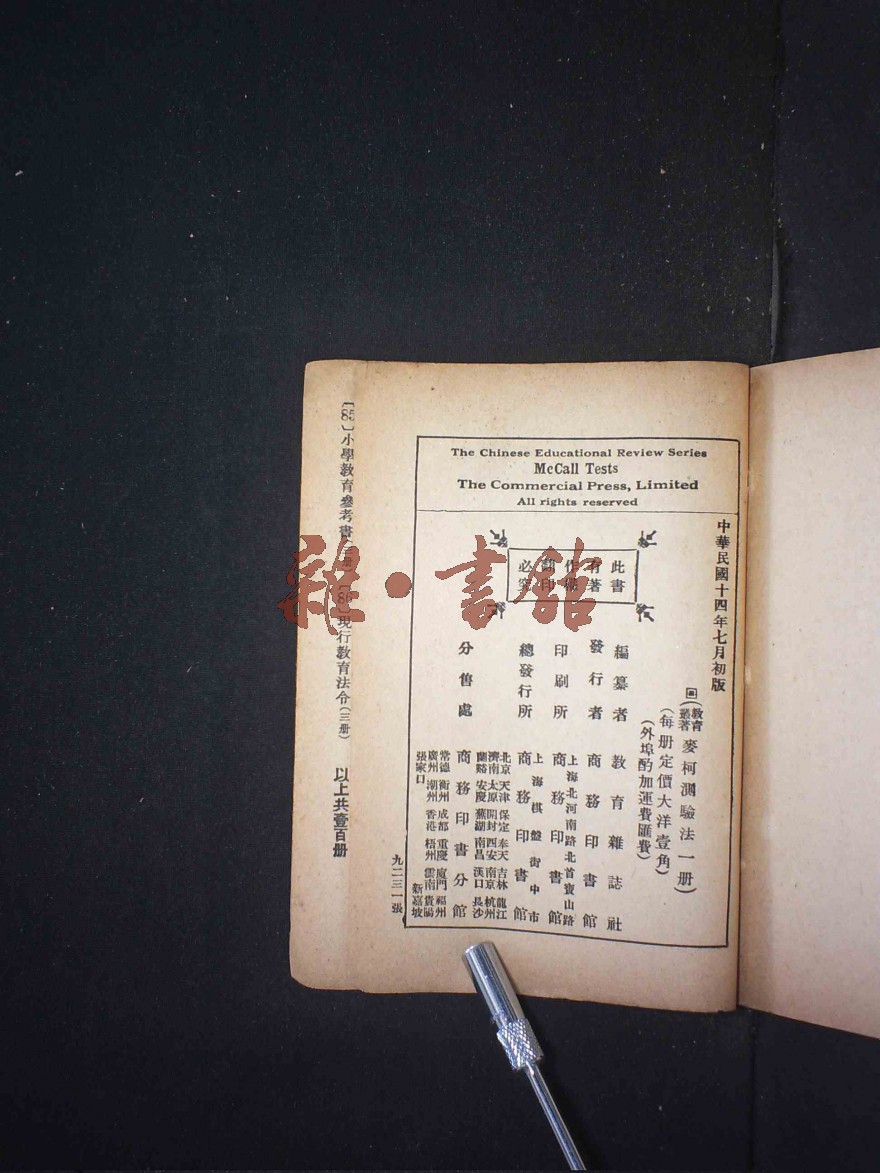 The Chinese Educational Review Series
McCall Tests
The Commercial Press, Limited
All rights reserved
中華民國十四年七月初版
教育叢著
麥柯測驗法一册)
(每册定價大洋壹角)
(外埠酌加運費匯費)
此書
有著
作權
翻印
必究
編纂者 教育雜誌社
發行者 商務印書館
印刷所 上海北河南路北首寶山路
商務印書館
總發行所 上海棋盤街中市
商務印書館
分售處 北京天津保定奉天吉林龍江
濟南太原開封西安南京杭州
蘭谿安慶蕪湖南昌漢口長沙
商務印書分館
常德衡州成都重慶廈門福州
廣州潮州香港梧州雲南貴陽
張家口 新嘉坡
九二三一張
〔85〕小學教育參考書 册 〔86〕現行教育法令(三册) 以上共壹百册
雜·書館